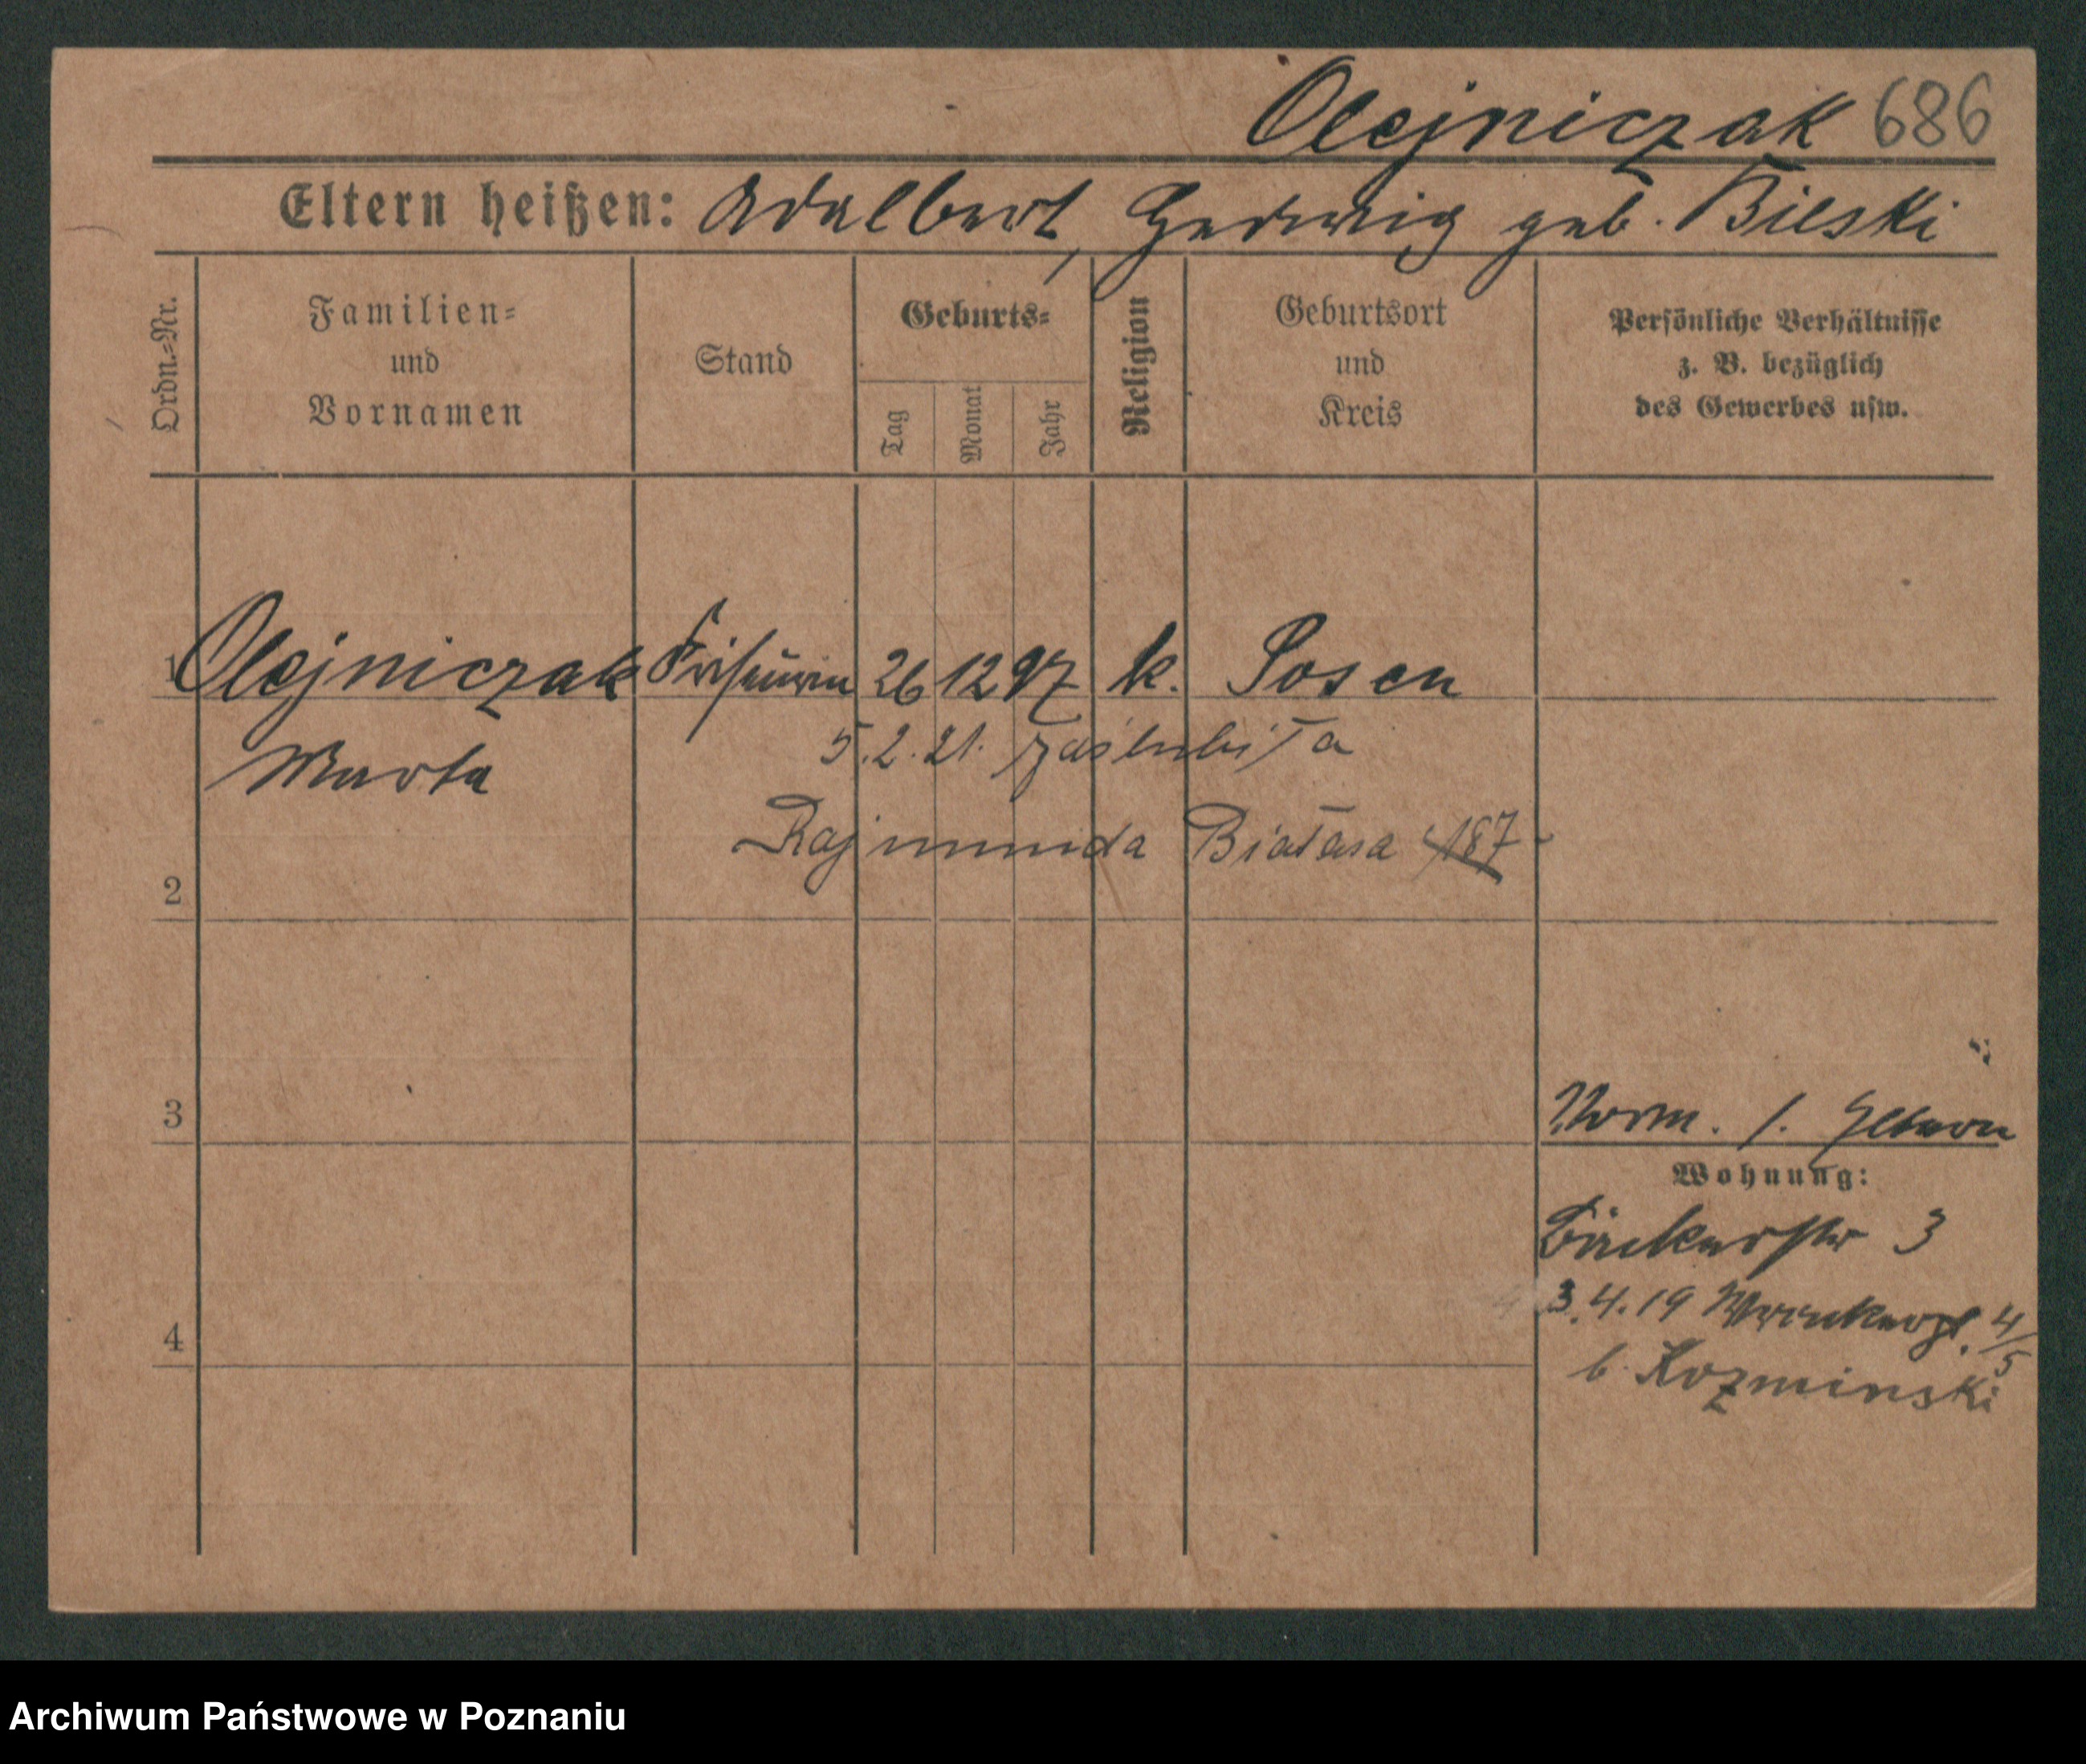 Olejniczak 686
Eltern heißen: Adalbert, Hedwig geb. Bilski
Ordn.=Nr.
Familien=
und
Vornamen
Stand
Geburts=
Tag
Monat
Jahr
Religion
Geburtsort
und
Kreis
Persönliche Verhältnisse
z. B. bezüglich
des Gewerbes usw.
1 Olejniczak Friseurin 26 12 97 k. Posen
Marta
5.2.21. zaślubiła
Rajmunda Białasa 187
2
3
Vorm. s. Eltern
Wohnung:
Bäckerstr 3
3.4.19 4/5
4
b. Kozminski
Archiwum Państwowe w Poznaniu